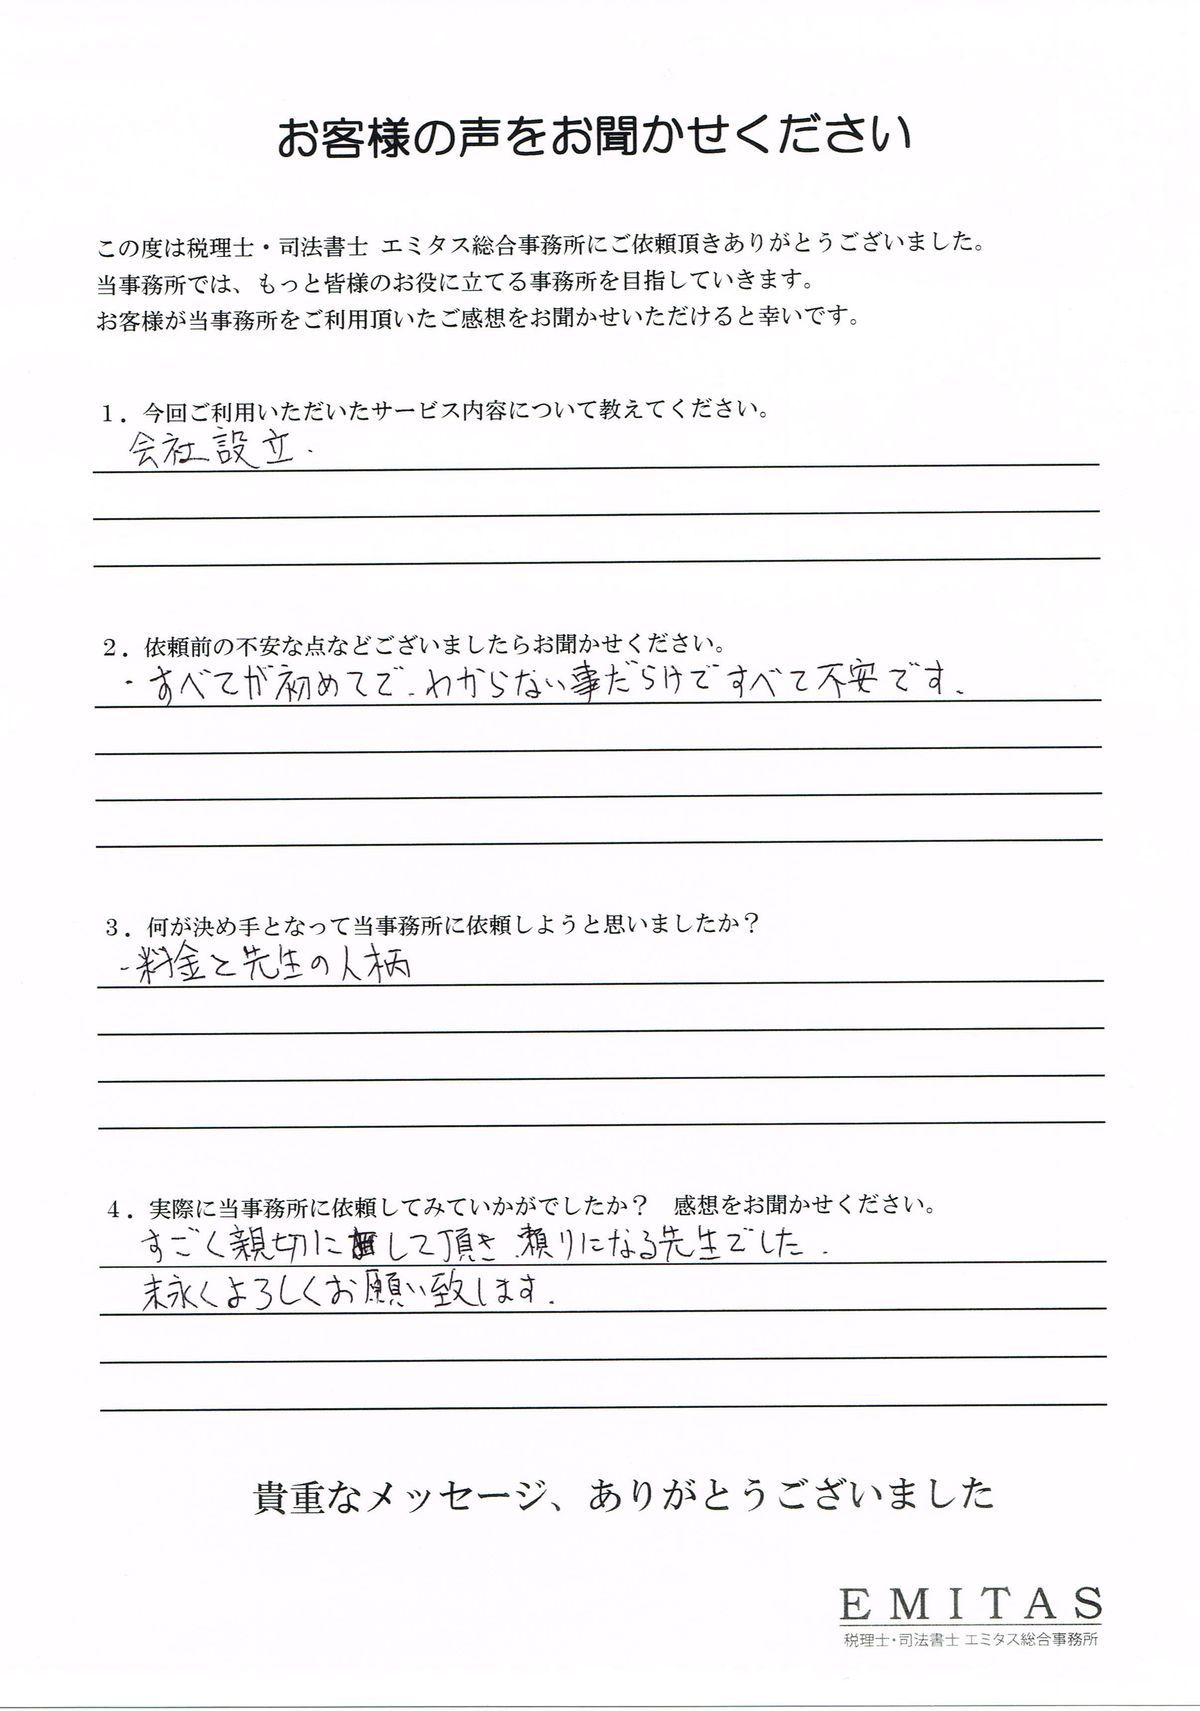 お客様の声をお聞かせください
この度は税理士・司法書士 エミタス総合事務所にご依頼頂きありがとうございました。
当事務所では、もっと皆様のお役に立てる事務所を目指していきます。
お客様が当事務所をご利用頂いたご感想をお聞かせいただけると幸いです。
１．今回ご利用いただいたサービス内容について教えてください。
会社設立.
２．依頼前の不安な点などございましたらお聞かせください。
・すべてが初めてで、わからない事だらけですべて不安です.
３．何が決め手となって当事務所に依頼しようと思いましたか？
・料金と先生の人柄
４．実際に当事務所に依頼してみていかがでしたか？　感想をお聞かせください。
すごく親切にして頂き、頼りになる先生でした.
末永くよろしくお願い致します.
貴重なメッセージ、ありがとうございました
EMITAS
税理士・司法書士 エミタス総合事務所